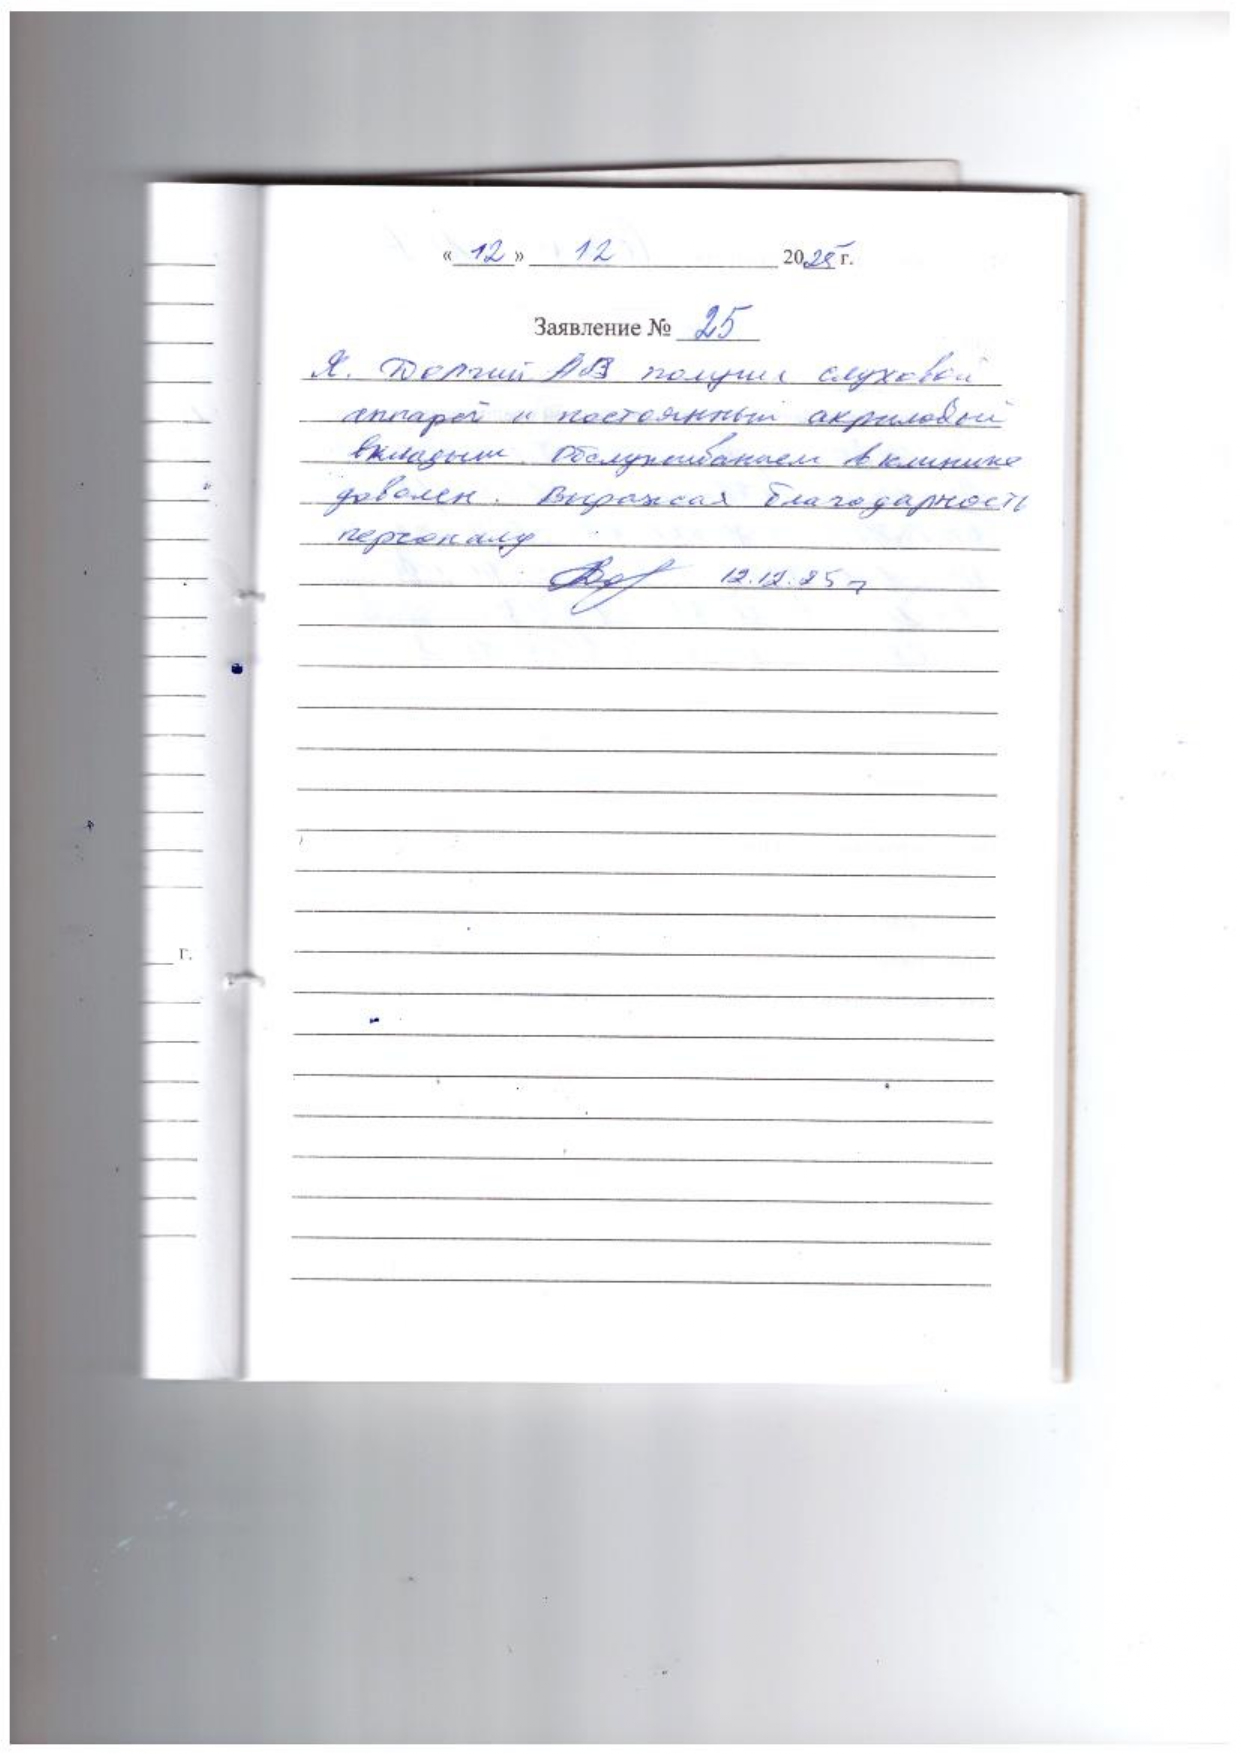 « 12 » 12 2025 г.
Заявление № 25
Я. Долгий АВ получил слуховой
аппарат и постоянный акриловый
вкладыш. Обслуживанием в клинике
доволен. Выражаю благодарность
персоналу
12.12.25 г
г.